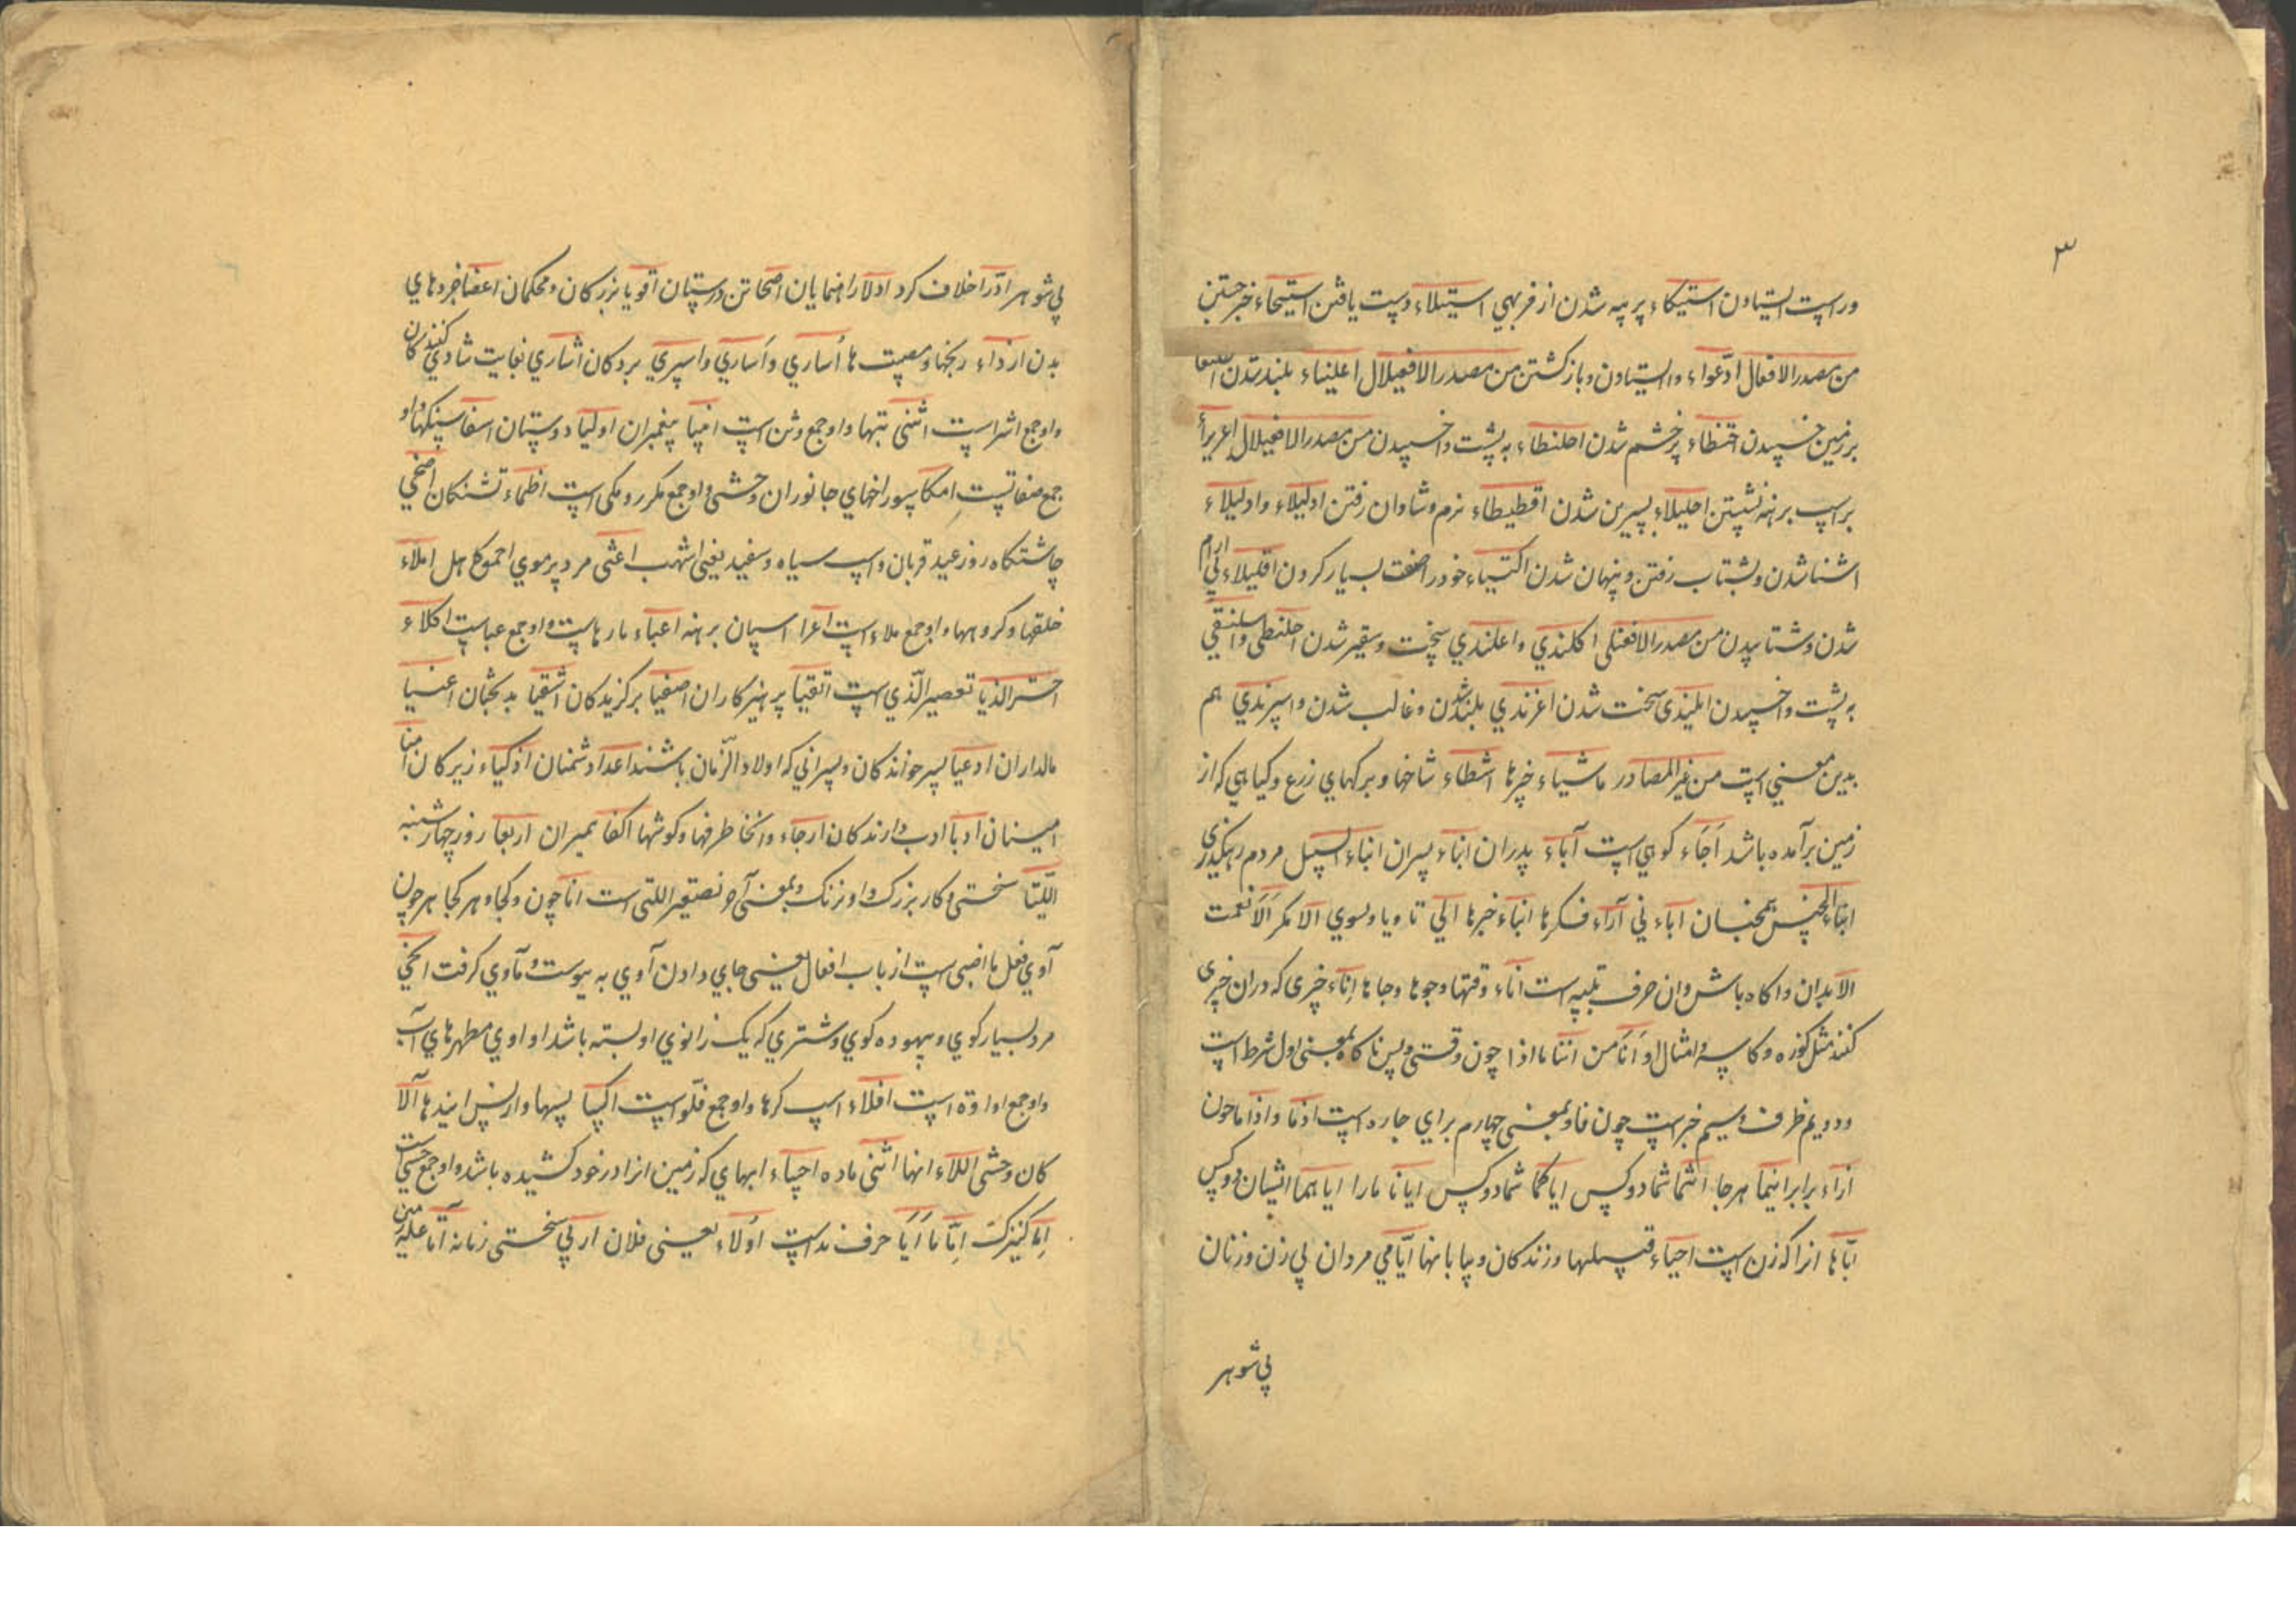 ۳
وراست ایستادن استیکاء پر پیه شدن از فربهی استیلاء دست یافتن استیحاء خبر جستن
من مصدر الافعال ادعواء واایستادن و باز کشتن من مصدر الافعیلال اعلیناء بلند شدن
بر زمین خسپیدن احتنظاء پر خشم شدن احلنطاء به پشت واخسپیدن من مصدر الافعیلال اعریرا
بر اسپ برهنه نشستن احلیلاء شیرین شدن اقطیطاء نرم و شادان رفتن ادلیلاء وادلیلاء
اشنا شدن و بشتاب رفتن و پنهان شدن اکتیاء خود را صفت بسیار کردن اقلیلاء بی ارام
شدن و شتابیدن من مصدر الافعنلی اکلندی و اعلندی سخت و سقیر شدن احلنطی و اسلنقی
به پشت واخسپیدن ابلندی سخت شدن اغرندی بلند شدن و غالب شدن و اسرندی هم
بدین معنی است من غیر المصادر ماشیاء چیزها اشطاء شاخها و برکهای زرع و کیاهی که از
زمین برآمده باشد اجاء کوهی است آباء پدران ابناء پسران ابناء السبیل مردم رهکذری
ابناء الجنس همجنسان اباء نی آراء فکرها انباء خبرها الی تا و یا و بسوی الا مکر الا نعمت
الا بدان و اکاه باش و ان حرف تنبیه است اناء وقتها و جوها و جاها اناء چیزی که دران چیزی
کنند مثل کوزه و کاسه و امثال او انا من انتا ما اذا چون وقتی و پس ناکاه بمعنی اول شرط است
و دویم ظرف و سیم خبر است چون فا و بمعنی چهارم برای جاره است اذما و اذا ما چون
ازاء برابر اینما هر جا انتما شما دو کس ایاکما شما دو کس ایانا مارا ایاهما ایشان دو کس
ایاها انرا که زن است احیاء قبیلها و زندکان و بیابانها ایامی مردان بی زن و زنان
بی شوهر
بی شوهر ادرا خلاف کرد ادلا راهنمایان اصحا تن درستان اقویا بزرکان و محکمان اعضا جزوهای
بدن ارزاء رنجها و مصیبت ها اساری و اساری و اسری بردکان اشاری بغایت شادی کنندکان
و او جمع اشر است اثنی بتها و او جمع وثن است انبیا پیغمبران اولیا دوستان اصفا سنکها و او
جمع صفاتست امکا سوراخهای جانوران وحشی و او جمع مکر و مکی است اظماء تشنکان اضحی
چاشتکاه روز عید قربان و اسپ سیاه و سفید یعنی اشهب اعثی مرد پر موی احمو کاهل املاء
خلقها و کروهها و او جمع ملاء است اعرا اسپان برهنه اعباء بارهاست و او جمع عباست اکلاء
اللذیا تصغیر الذی است اتقیا پرهیزکاران اصفیا برکزیدکان اشقیا بدبختان اغنیا
مالداران ادعیا پسر خواندکان و پسرانی که اولاد الزمان باشند اعدا دشمنان اذکیاء زیرکان امنا
امینان ادبا ادب دارندکان ارجاء و انحا طرفها و کوشها اکفا همسران اربعا روز چهارشنبه
اللتیا سختی و کار بزرک و او نزنک و بمعنی آخر تصغیر اللتی است انا چون و کجا و هر کجا هر چون
آوی فعل ماضی است از باب افعال یعنی جای دادن آوی به پیوست و ماوی کرفت
مرد بسیار کوی و بیهوده کوی و شتری که یک زانوی او بسته باشد اواوی مطهرهای آب
و او جمع اداوة است افلاء اسپ کرها و او جمع فلو است اکسا پسها و از پس ایندها آلآ
کان وحشی اللاء انها اثنی ماده احساء ابهای که زمین انرا در خود کشیده باشد و او جمع حسی است
اما کنیزک اما ما ایا حرف نداست اولاء یعنی فلان اربی سختی زمانه